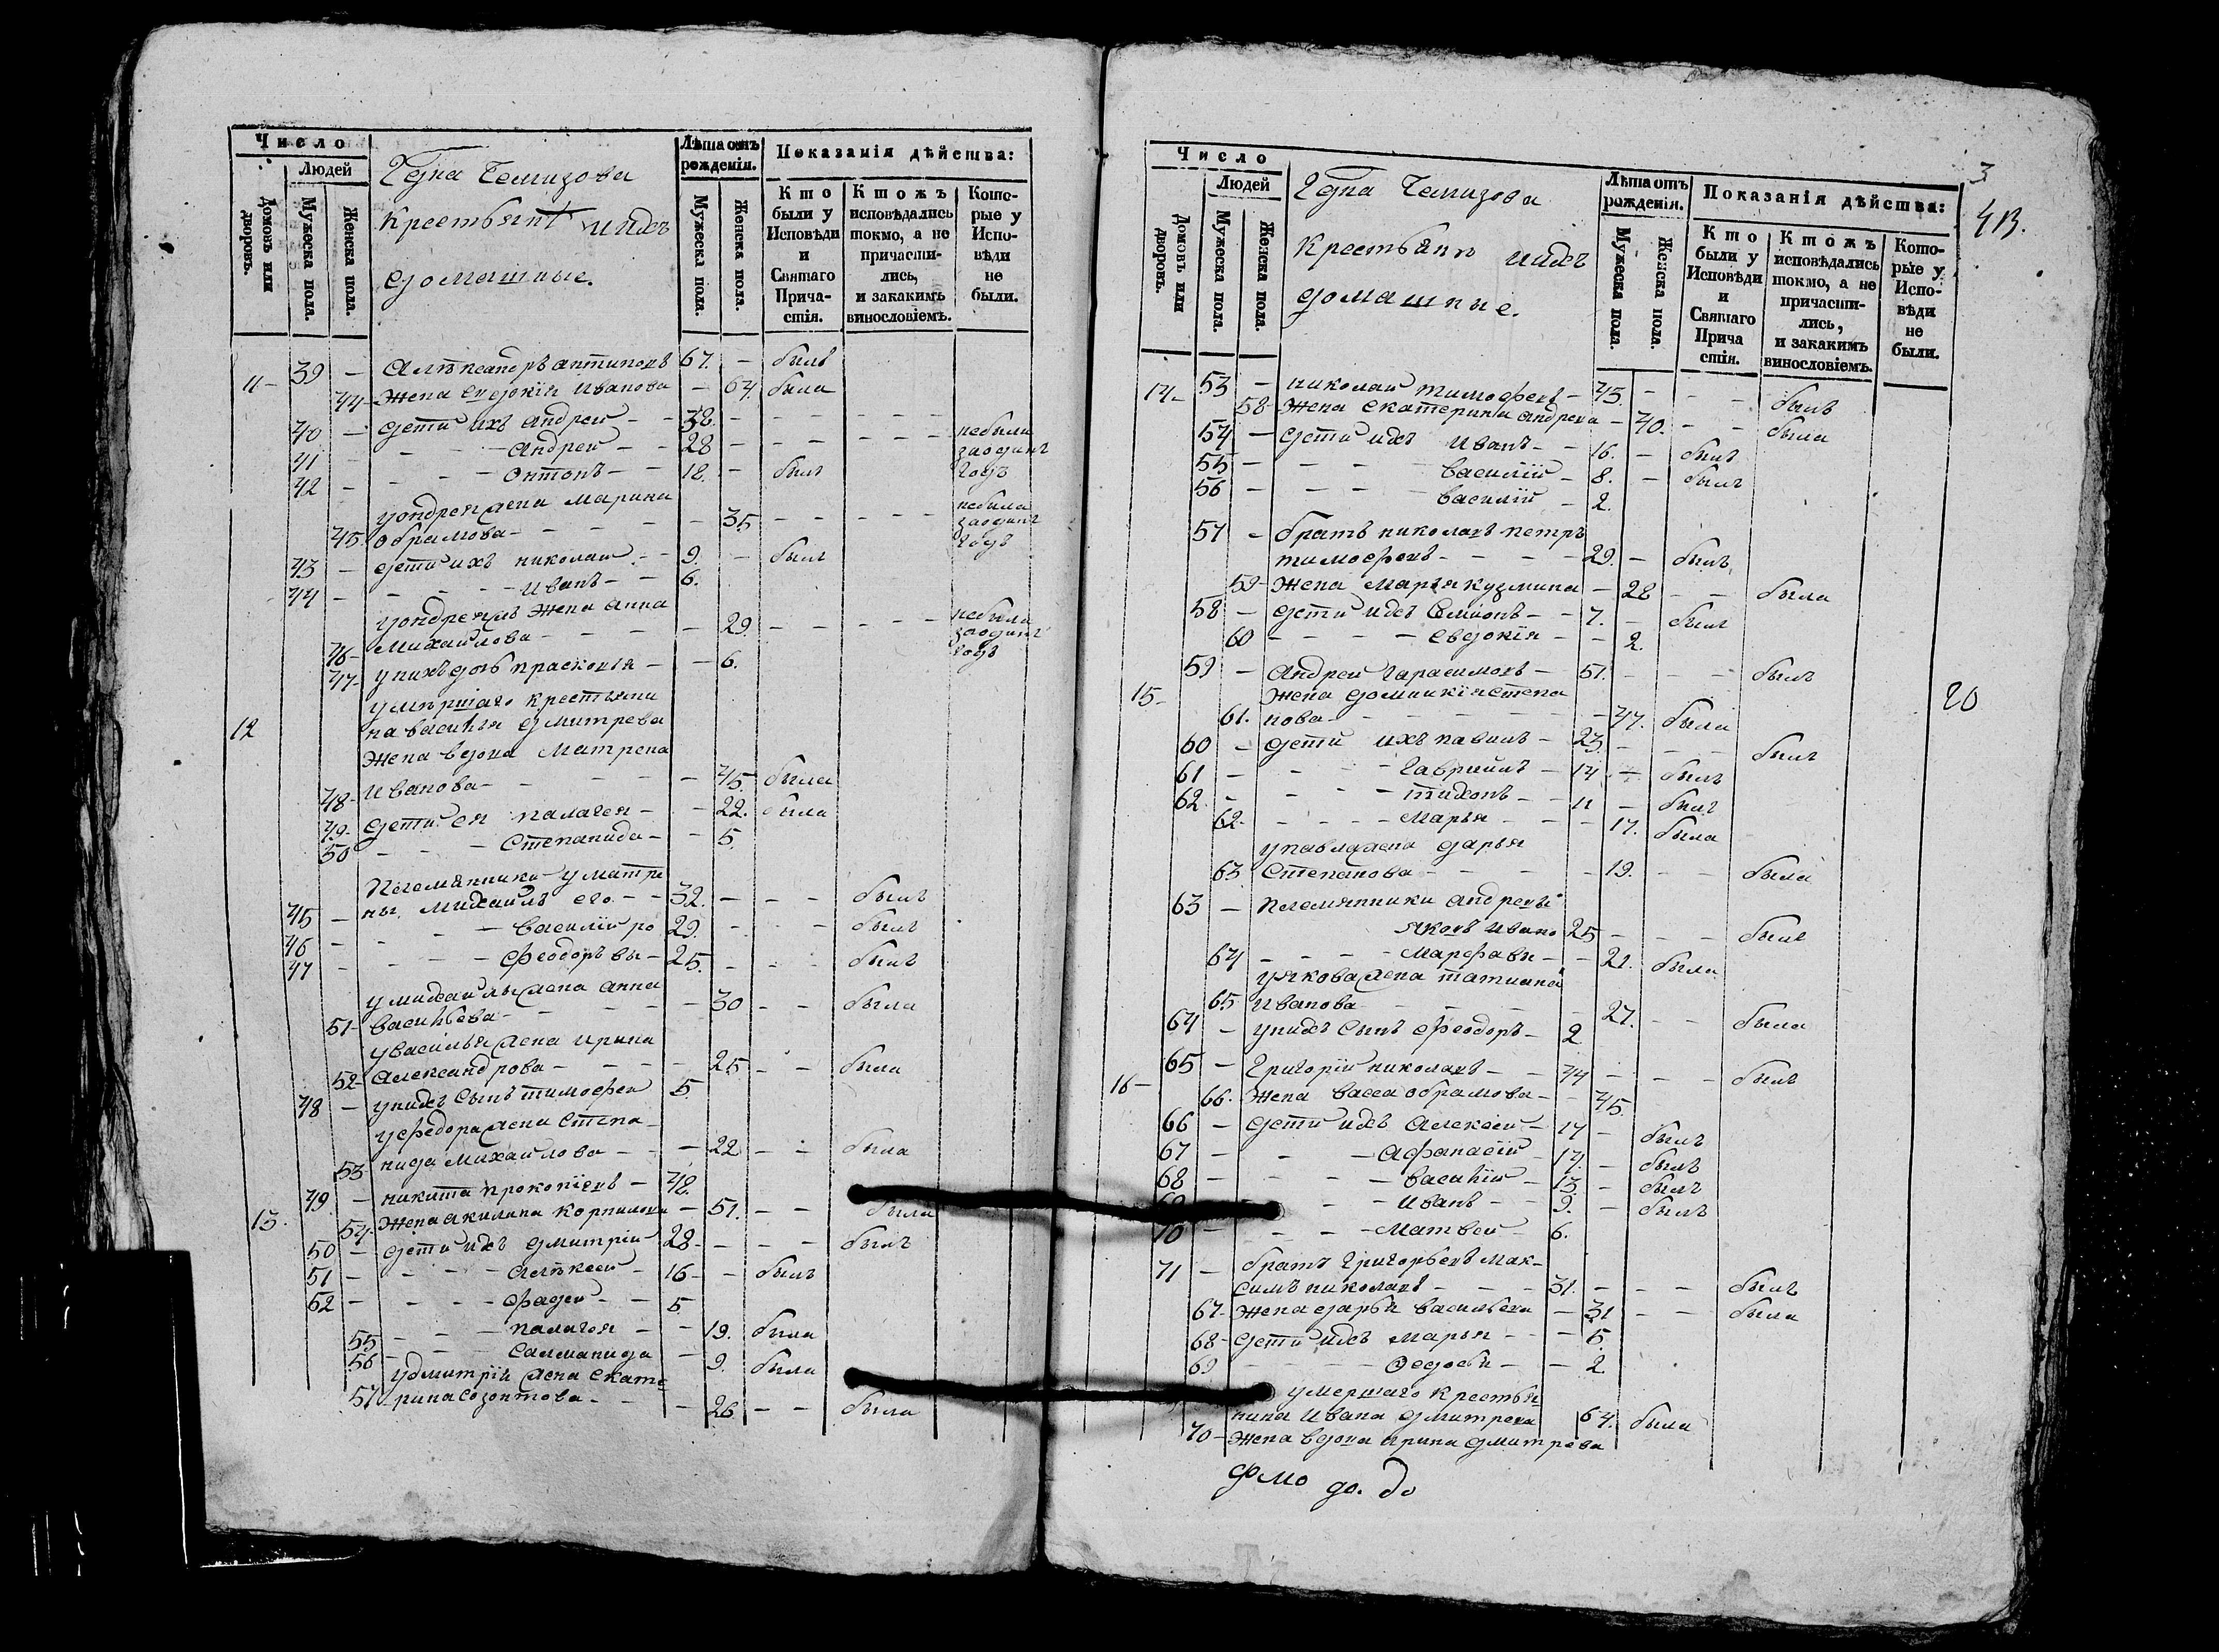 Число
Людей
Домовъ или дворовъ.
Мужеска пола.
Женска пола.
крестьянѣ ихъ
домашные.
Лѣта отъ рожденія.
Мужеска пола.
Женска пола.
Показанія дѣйства:
Кто были у Исповѣди и Святаго Причастія.
Ктожъ исповѣдались токмо, а не причастились, и закакимъ винословіемъ.
Которые у Исповѣди не были.
11 - 39 - Алѣксандръ антиповъ 67. - былъ
44 - Жена Евдокія Иванова - 64. была
40 - дети ихъ Андреи - - 38. - - - - - небыли
41 - - - - Андреи - - 28 - - - - - заодинъ
42 - - - - Онтонъ - - 18. - былъ годъ
уондрея жена Марина небыла
45. Обрамова - - - - 35 - - - - заодинъ
годъ
43 - дети ихъ николаи - - 9. - былъ
44 - - - - - Иванъ - - 6.
жена Анна небыла
46 - Михаилова - - - - 29. - - - - заодинъ
47 - унихъ дочь прасковья - - 6. годъ
умѣршаго крестьяни
12 на василья дмитрева
Жена вдова Матрена
48 - Иванова - - - - 45. была
49. дети ея палагея - - 22. была
50 - - - Степанида - - 5.
Племянники у матре
45 - ны Михаилъ его - - 32. - - - былъ
46 - - - - Василіи ро 29. - - - былъ
47 - - - - феодоръ вы - 25. - - - былъ
у михаилы жена анна
51 - васильева - - - 30 - - была
увасилья жена ирина
52 - Александрова - - - 25 - - была
48 - унихъ сынъ тимофеи 5
уфедора жена Степа-
53 нида Михаилова - - - 22 - - была
13. 49. - никита прокопіевъ - 48.
54 - Жена акилина корнилова - 51. - - была
50 - дети ихъ дмитріи 28 - - - былъ
51 - - - - Алѣксеи - 16 - - былъ
52 - - - - фадеи - - 5
55 - - - палагея - - 19. была
56 - - - Саламанида - 9. была
удмитрія жена Екате
57 - рина созонтова - - - 26 - - была
3
413.
Число
Людей
Домовъ или дворовъ.
Мужеска пола.
Женска пола.
крестьянъ ихъ
домашные.
Лѣта отъ рожденія.
Мужеска пола.
Женска пола.
Показанія дѣйства:
Кто были у Исповѣди и Святаго Причастія.
Ктожъ исповѣдались токмо, а не причастились, и закакимъ винословіемъ.
Которые у Исповѣди не были.
14 - 53 - николаи тимофеевъ - 45. - - - былъ
58 - Жена екатерина андреева - 40. - - была
54 - дети ихъ Иванъ - - 16. - былъ
55 - - - - василіи - 8. - былъ
56 - - - - василіи - 2.
57 - братъ николаевъ петръ
тимофеевъ - - - - 29. - былъ
59 - Жена Марья кузмина - 28 - - была
58 - дети ихъ Семіонъ - - 7. - былъ
60 - - - - евдокія - - 2.
15 - 59 - Андреи гарасимовъ - 51. - - - былъ
Жена домникія степа
61. нова - - - - - 47. была
60 - дети ихъ павилъ - 23. - - - былъ
61 - - - - гавриилъ - 14 - былъ
62. - - - - тихонъ - - 11 - былъ
62 - - - - - Марья - - - 17. была
упавла жена дарья
63 Степанова - - - - 19. - - была
63 - племянники андреевы
яковъ ивано 25 - - - былъ
64 - - - - - Марфа вы - - 21. была
уякова жена татиана
65 Иванова - - - 27. - - была
64 - унихъ сынъ феодоръ - 2
16 - 65 - Григоріи николаевъ - - 44 - - - былъ
66. Жена васса обрамова - - 45.
66 - дети ихъ Алексеи - 17 - былъ
67 - - - - Афанасіи - 17. - былъ
68 - - - - василіи - 13. - былъ
69 - - - Иванъ - - 9. - былъ
70 - - - - Матвеи - 6.
71 - братъ григорьевъ мак-
симъ николаевъ - - - 31. - - - былъ
67 - Жена дарья васильева - 31 - - была
68 - дети ихъ марья - - - 5.
69 - - - - - Федосья - - 2.
умершаго крестья
нина Ивана дмитрева 64. была
70 - Жена вдова ирина дмитрева
20